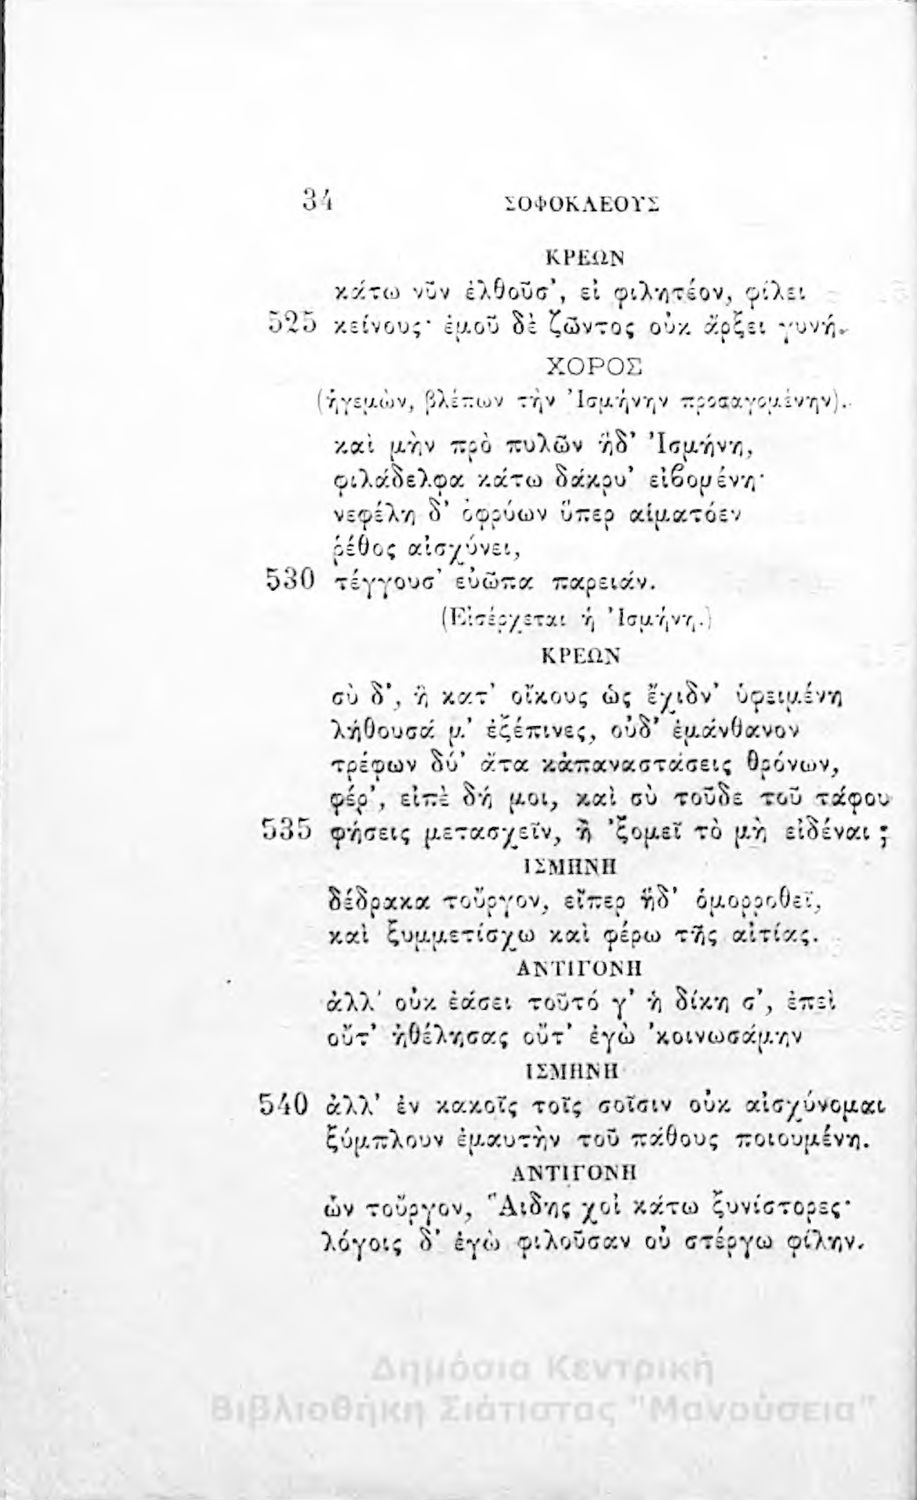 34 ΣΟΦΟΚΛΕΟΥΣ
ΚΡΕΩΝ
κάτω νῦν ἐλθοῦσ', εἰ φιλητέον, φίλει
525 κείνους· ἐμοῦ δὲ ζῶντος οὐκ ἄρξει γυνή.
ΧΟΡΟΣ
(ἡγεμών, βλέπων τὴν Ἰσμήνην προσαγομένην).
καὶ μὴν πρὸ πυλῶν ἥδ' Ἰσμήνη,
φιλάδελφα κάτω δάκρυ' εἰβομένη·
νεφέλη δ' ὀφρύων ὕπερ αἱματόεν
ῥέθος αἰσχύνει,
530 τέγγουσ' εὐῶπα παρειάν.
(Εἰσέρχεται ἡ Ἰσμήνη.)
ΚΡΕΩΝ
σὺ δ', ἣ κατ' οἴκους ὡς ἔχιδν' ὑφειμένη
λήθουσά μ' ἐξέπινες, οὐδ' ἐμάνθανον
τρέφων δύ' ἄτα κἀπαναστάσεις θρόνων,
φέρ', εἰπὲ δή μοι, καὶ σὺ τοῦδε τοῦ τάφου
535 φήσεις μετασχεῖν, ἢ 'ξομεῖ τὸ μὴ εἰδέναι ;
ΙΣΜΗΝΗ
δέδρακα τοὔργον, εἴπερ ἥδ' ὁμορροθεῖ,
καὶ ξυμμετίσχω καὶ φέρω τῆς αἰτίας.
ΑΝΤΙΓΟΝΗ
ἀλλ' οὐκ ἐάσει τοῦτό γ' ἡ δίκη σ', ἐπεὶ
οὔτ' ἠθέλησας οὔτ' ἐγὼ 'κοινωσάμην
ΙΣΜΗΝΗ
540 ἀλλ' ἐν κακοῖς τοῖς σοῖσιν οὐκ αἰσχύνομαι
ξύμπλουν ἐμαυτὴν τοῦ πάθους ποιουμένη.
ΑΝΤΙΓΟΝΗ
ὧν τοὔργον, Ἅιδης χοἰ κάτω ξυνίστορες·
λόγοις δ' ἐγὼ φιλοῦσαν οὐ στέργω φίλην.
Δημόσια Κεντρική
Βιβλιοθήκη Σιάτιστας "Μανούσεια"